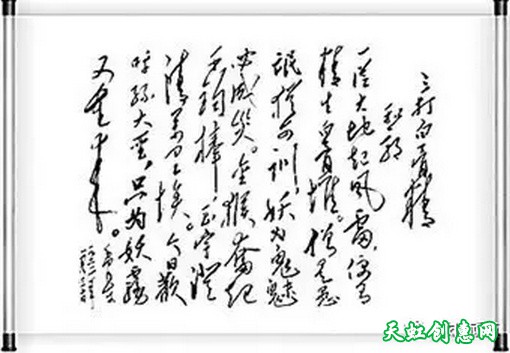 三打白骨精
和郭
一従大地起风雷，便有
精生白骨堆。僧是愚
氓犹可训，妖为鬼蜮
必成災。金猴奮起
千钧棒，玉宇澄
清万里埃。今日歡
呼孫大圣，只为妖霧
又重来。
天虹创意网